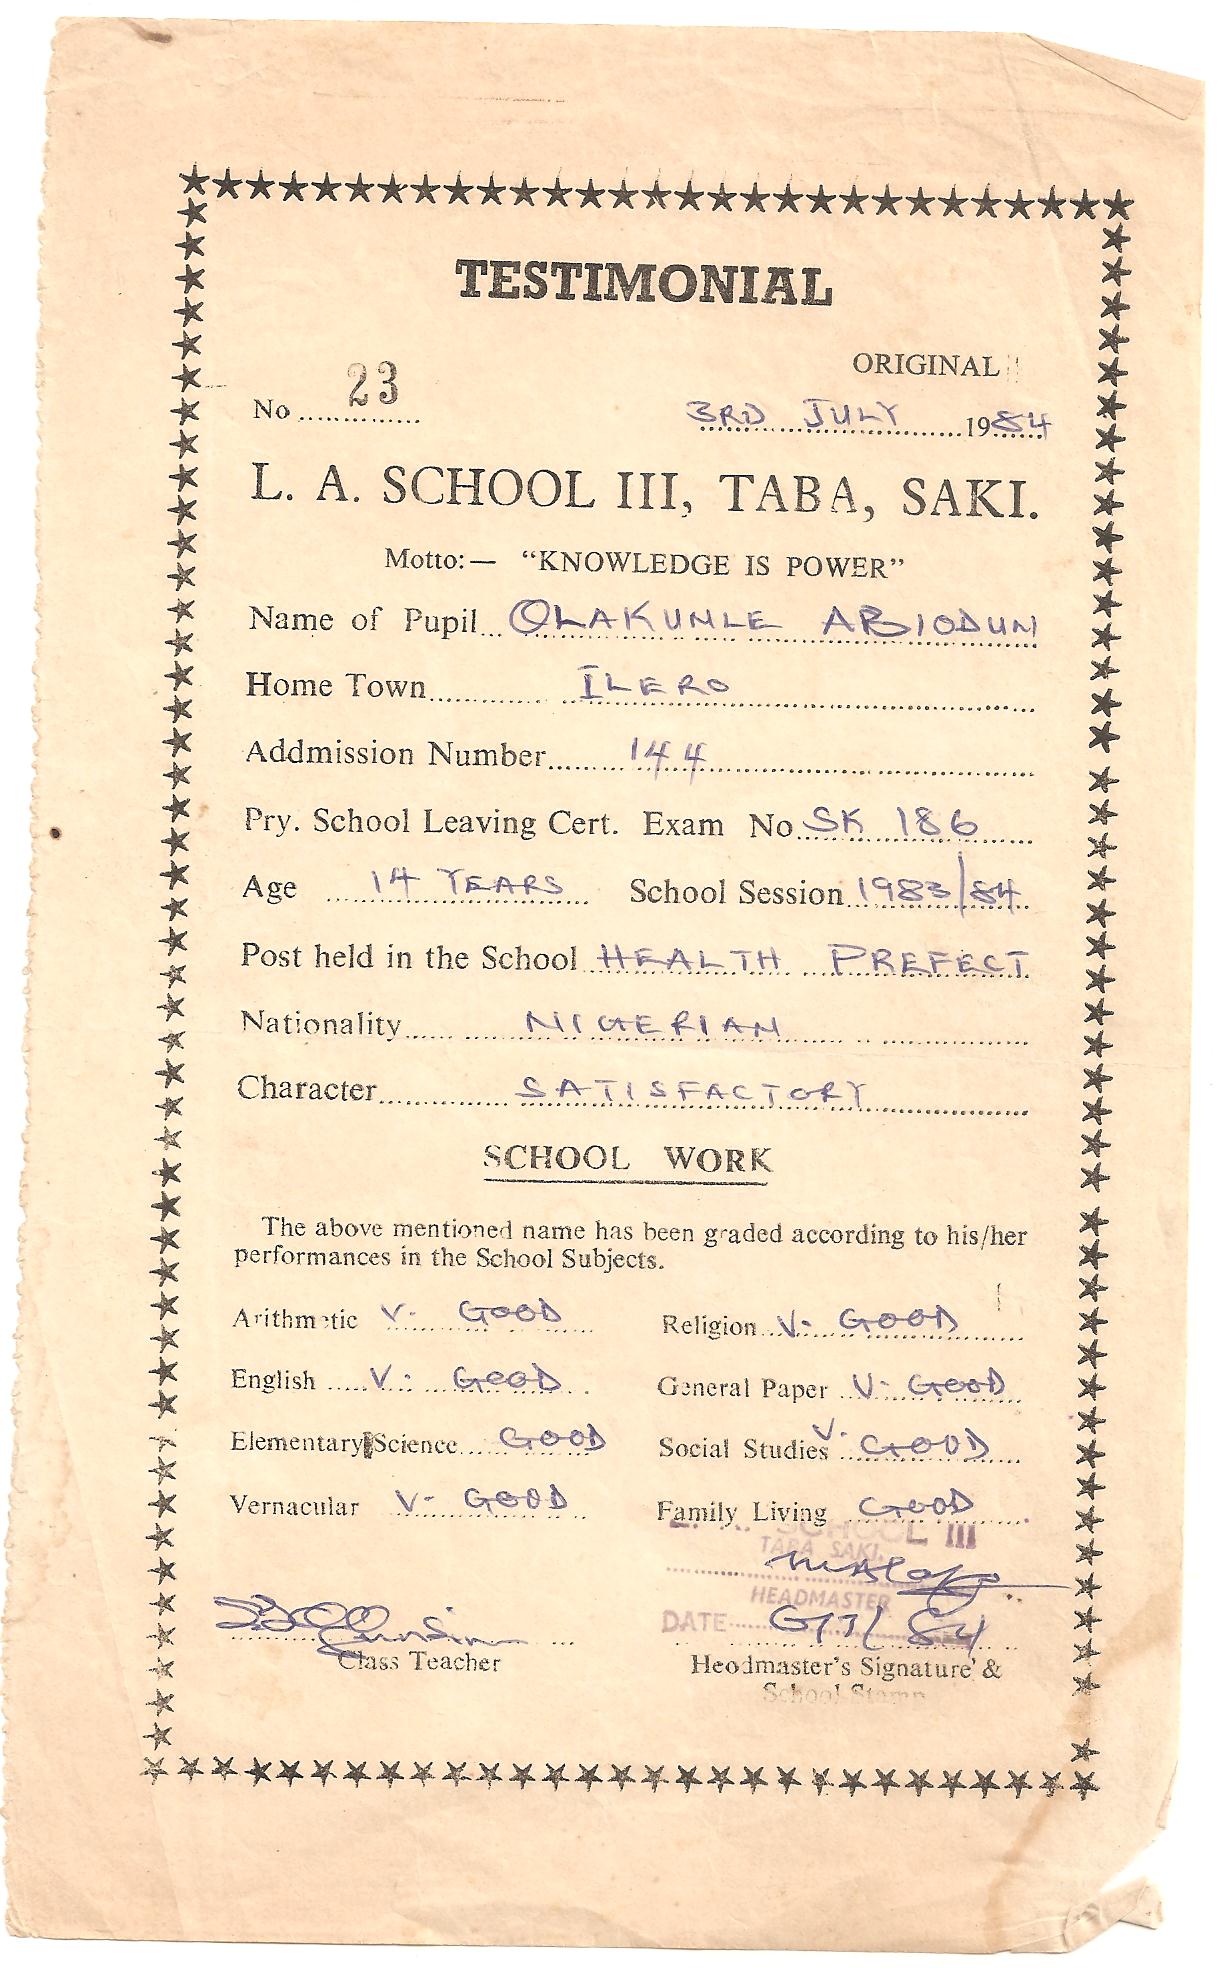 TESTIMONIAL
ORIGINAL
No 23
3RD JULY 1984
L. A. SCHOOL III, TABA, SAKI.
Motto:— “KNOWLEDGE IS POWER”
Name of Pupil OLAKUNLE ABIODUN
Home Town ILERO
Addmission Number 144
Pry. School Leaving Cert. Exam No SK 186
Age 14 YEARS School Session 1983/84
Post held in the School HEALTH PREFECT
Nationality NIGERIAN
Character SATISFACTORY
SCHOOL WORK
The above mentioned name has been graded according to his/her
performances in the School Subjects.
Arithmetic V. GOOD Religion V. GOOD
English V. GOOD General Paper V. GOOD
Elementary Science GOOD Social Studies V. GOOD
Vernacular V- GOOD Family Living GOOD
SCHOOL III
TABA SAKI.
HEADMASTER
DATE 6/7/84
Class Teacher Heodmaster's Signature &
School Stamp